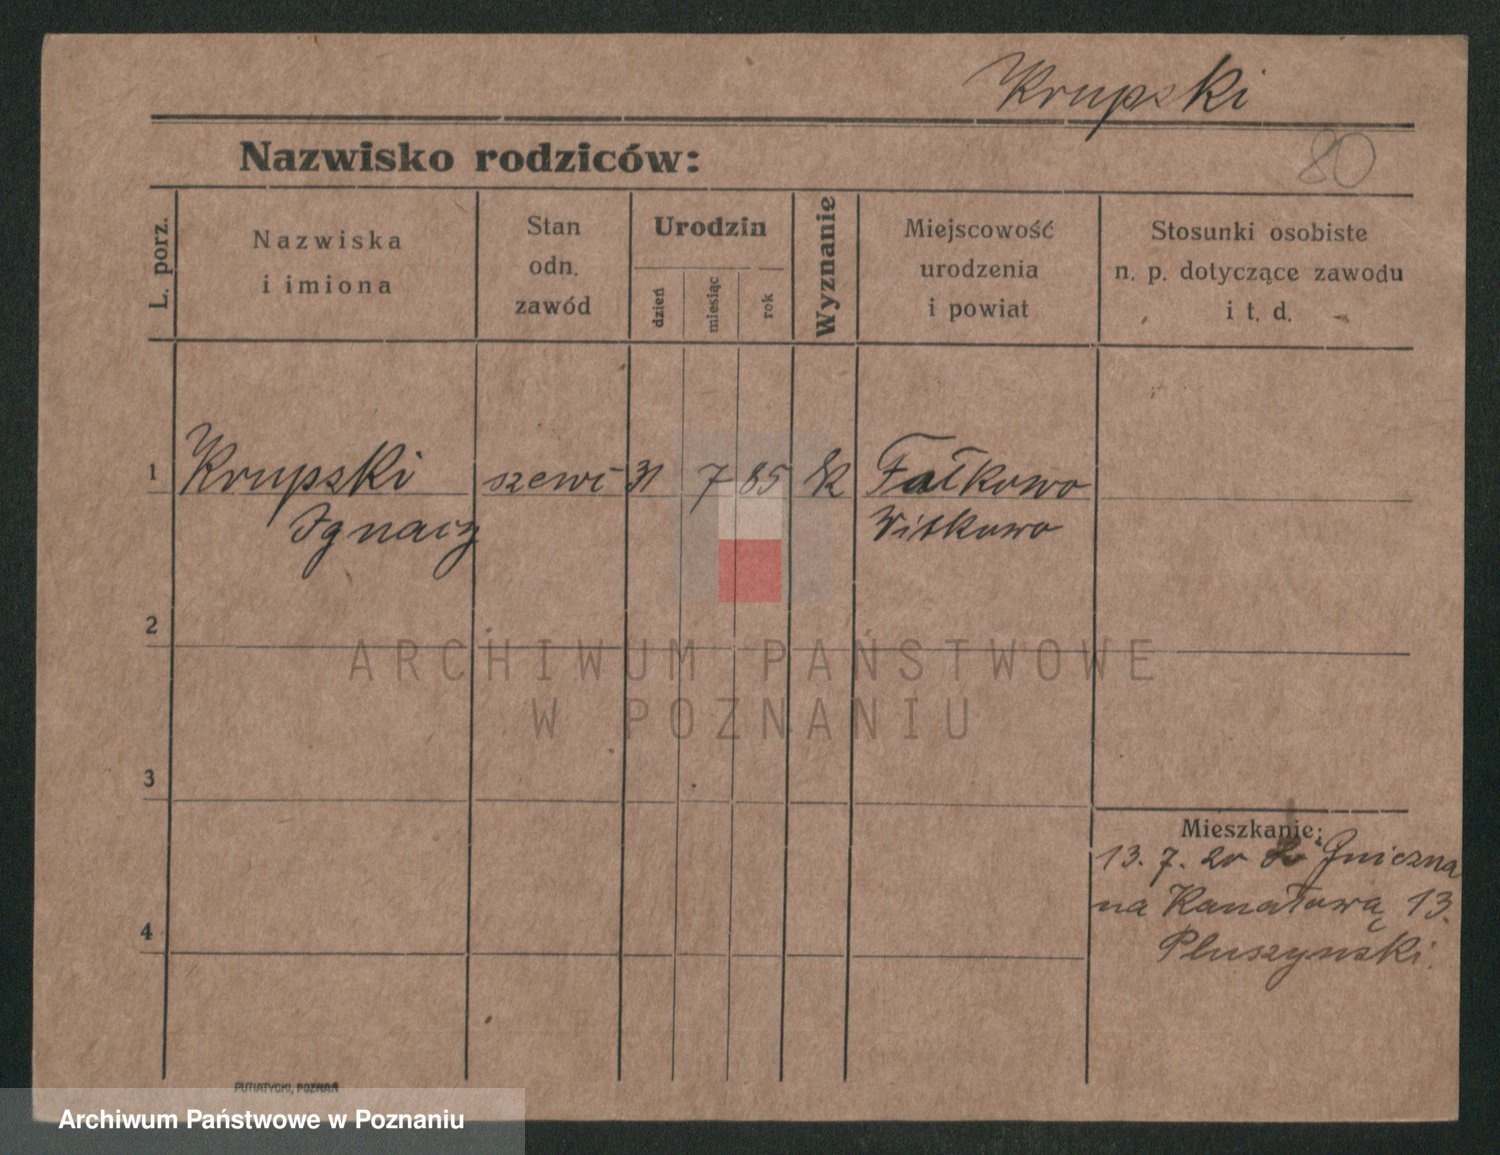 Krupski
80
Nazwisko rodziców:
L. porz.
Nazwiska
i imiona
Stan
odn.
zawód
Urodzin
dzień
miesiąc
rok
Wyznanie
Miejscowość
urodzenia
i powiat
Stosunki osobiste
n. p. dotyczące zawodu
i t. d.
1 Krupski szewc 31 7 85 k Fałkowo
Ignacy Witkowo
2
ARCHIWUM PAŃSTWOWE
W POZNANIU
3
Mieszkanie:
13. 7. 20 Gniezna
na Kanałową 13.
4
Pluszynski.
PUTIATYCKI, POZNAŃ
Archiwum Państwowe w Poznaniu